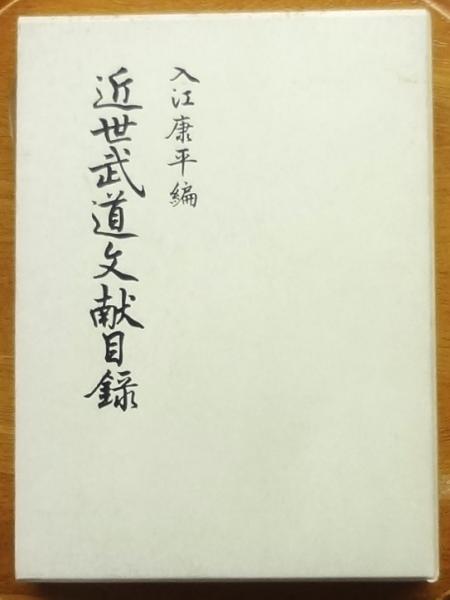 入江康平編
近世武道文献目録